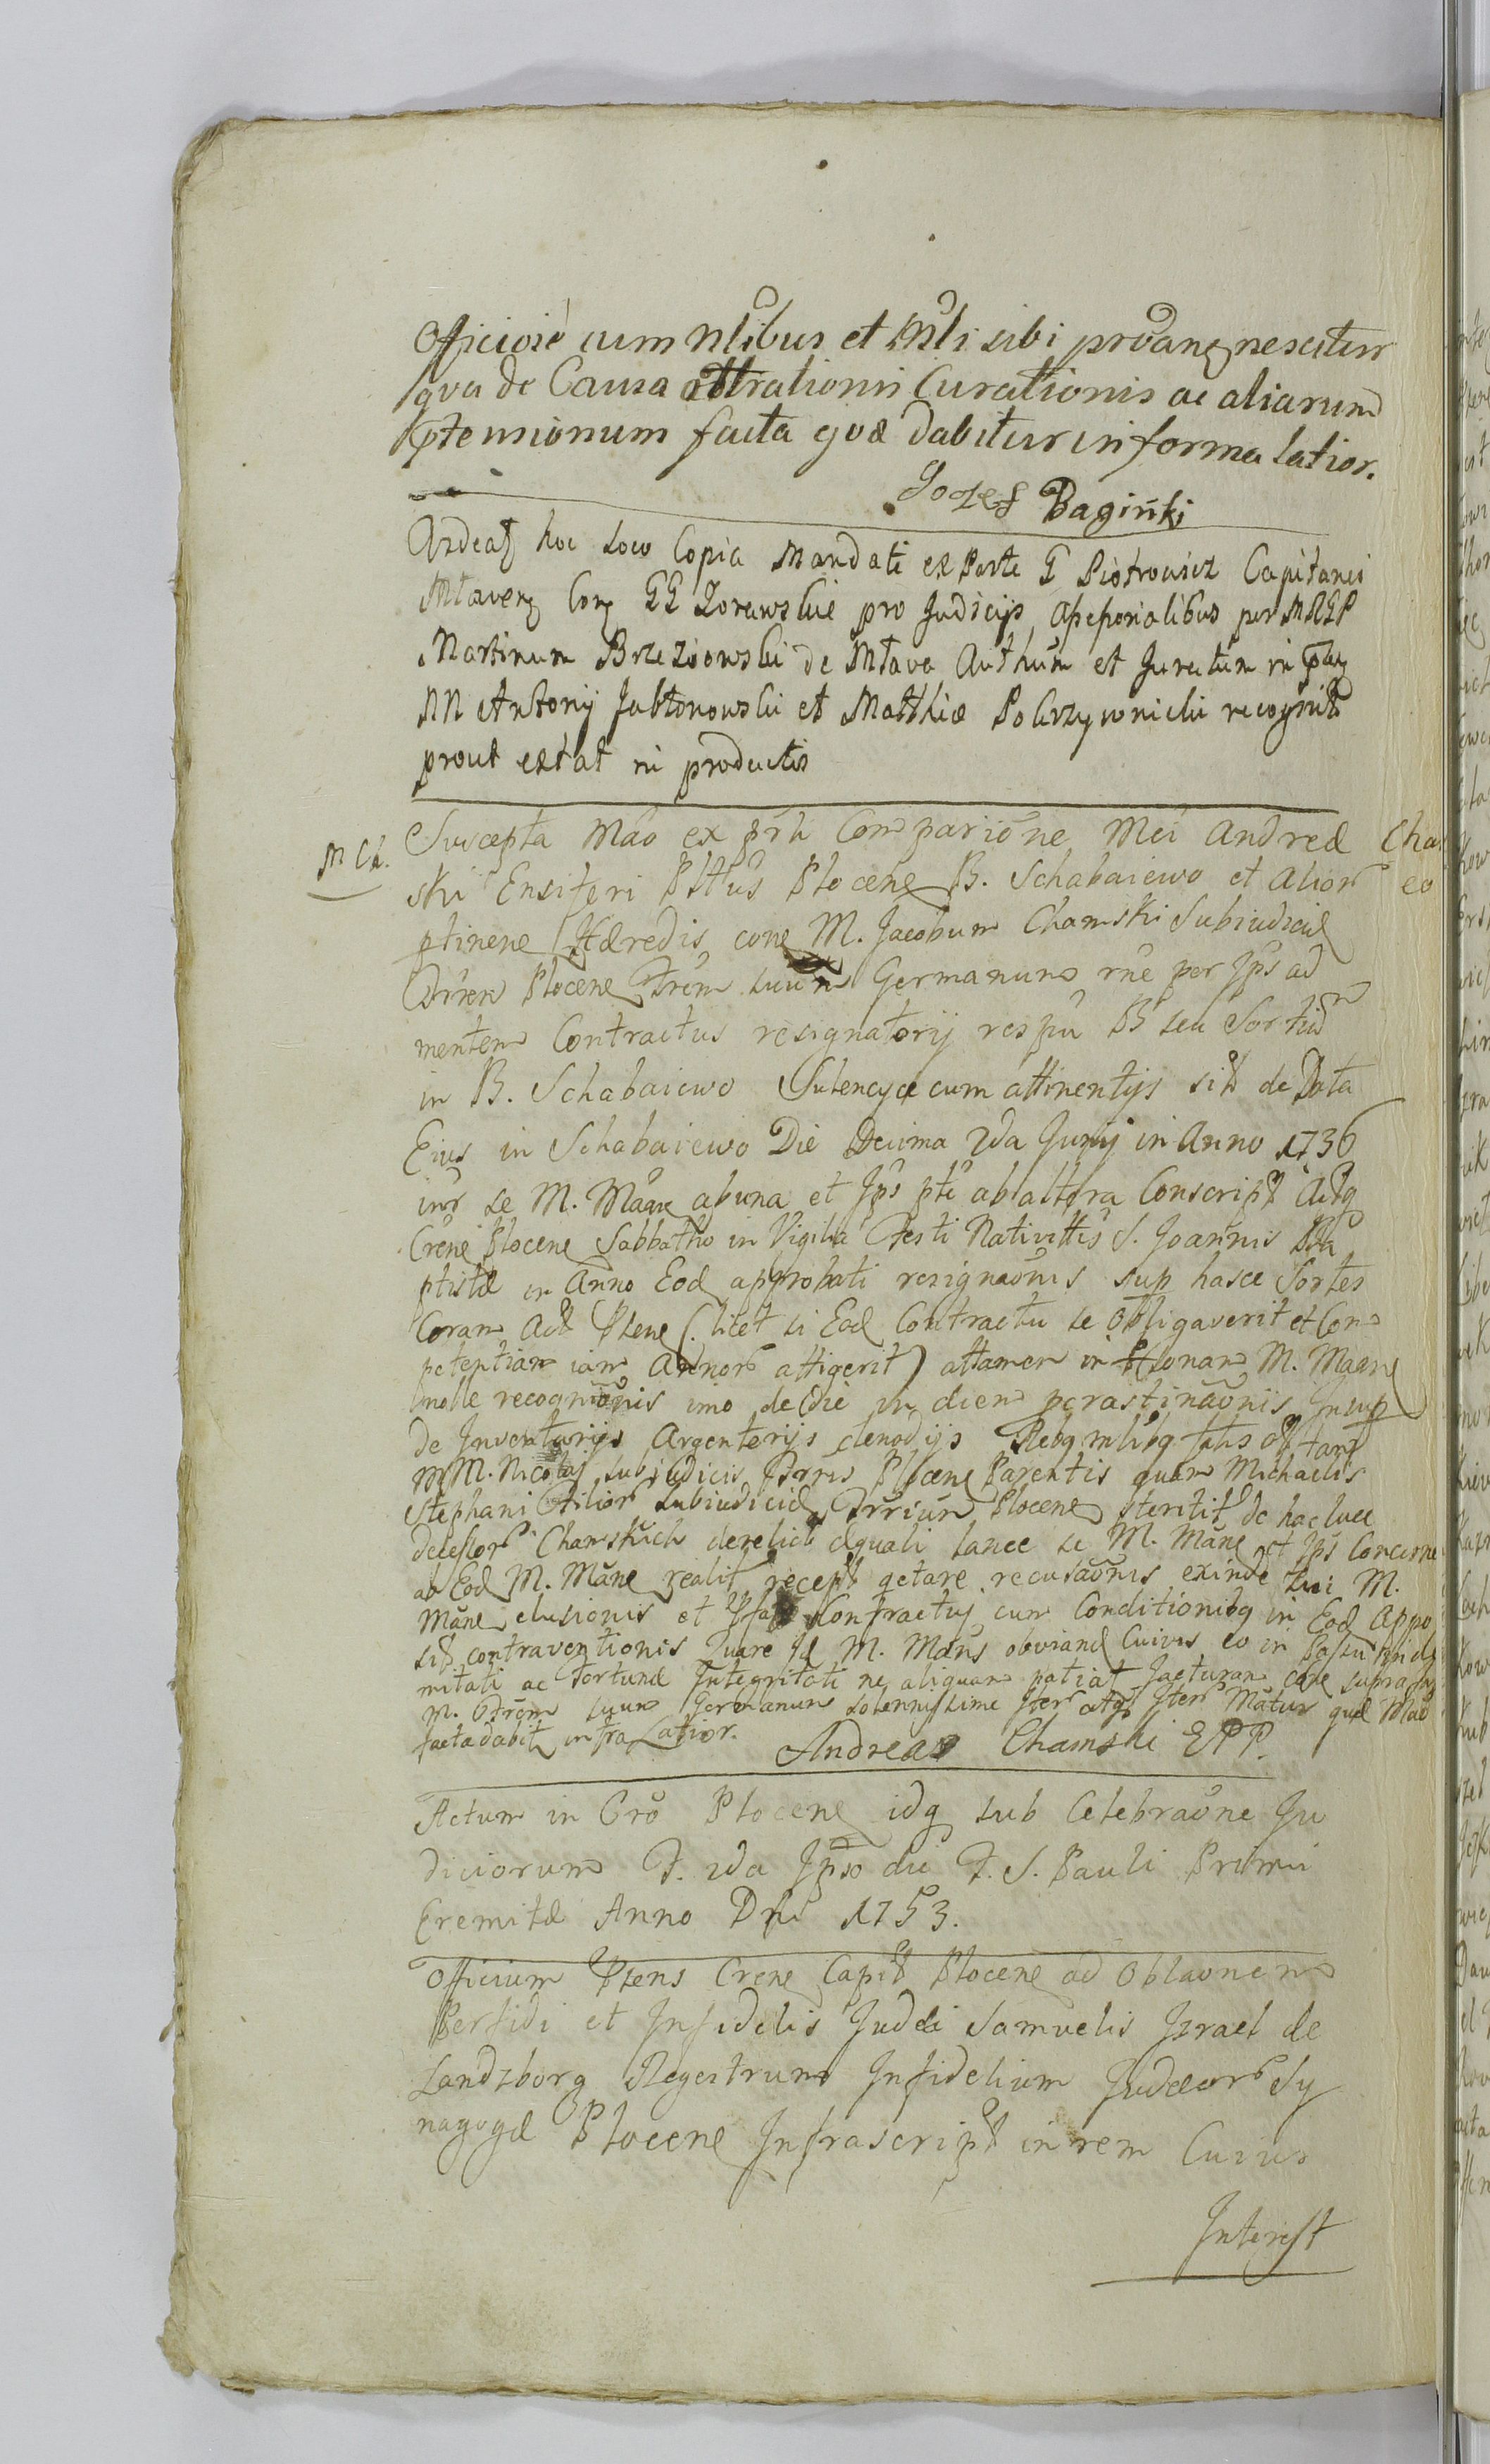 Officiose cum Nlibus et Mli sibi provane nescitur
qua de Causa attrationis Curationis ac aliarum
ptensionum facta quæ dabitur in forma latior.
Jozef Baginski
Ardeat hoc loco Copia Mandati ex Parte G Piotrowicz Capitanei
Mlaven Con GG Zorawskie pro Judicijs per MRGP
Martinum Brzeziowski de Mlava Authum et Juratum in
NN Antonij Jabłonowski et Matthiæ Pokrzywnicki recognit
prout extat in productis
M Ch.
Suscepta Mão ex prti Comparióne Mci Andreæ Cha
ski Ensiferi Plttus Plocene B. Schabaiewo et Alior eo
ptinene Hæredis cone M. Jacobum Chamski Subiudicie
Plocene Frem suum Germanum rne per Jps ad
mentem Contractus resignatorij respu B seu Sortium
in B. Schabaiewo Sulencyce cum attinentijs sit de Data
Eius in Schabaiewo Die Decima 2da Junij in Anno 1736
inr se M. Mãne ab una et Jps pte ab altera Conscript Actq
Crene Plocene Sabbatho in Vigilia Festi Nativittis S. Joannis Ba
ptistæ in Anno Eod approbati resignaonis sup hasce Sortes
Coram Act Psene (licet si Eod Contractu se obligaverit et Com
petentiam iam Annor attigerit) attamen in psonam M. Mane
nolle recognionis imo de Die in diem perastinaonis Insup
de Inventarijs Argenterijs clenodijs Rebq mlibq
M. Nicolaj subiudicis Trris Plocene Parentis quam Michaelis
Stephani Filior subiudicid Trrium Plocene de hac luce
decessor Chamskich derelict æquali lance se M. Mãne et Jps Concerne
ab Eod M. Mãne realit recept getare recusaonis exinde sui M.
Mãne elusionis et Contractus cum Conditionibq in Eod Appo
sit contraventionis Quare Id M. Mãns obviand Cuivis eo in
mitati ac Fortunæ Integritati ne aliquam patiat Jacturam cone
M. Frem suum Germanum solennissime Iter atq Iter Mãtur quæ Mão
facta dabit infra Latior.
Andreas Chamski EPP.
Actum in Cro Plocene idq sub Celebraone Ju
diciorum F. 2da Ipso die F. S. Pauli Primi
Eremitæ Anno Dni 1753.
Officium Psens Crene Capit Plocene ad Oblaonem
Perfidi et Infidelis Judæi Samuelis Izrael de
Landzborg Regestrum Infidelium Judæor Sy
nagogæ Plocene Infrascript in rem Cuius
Interest